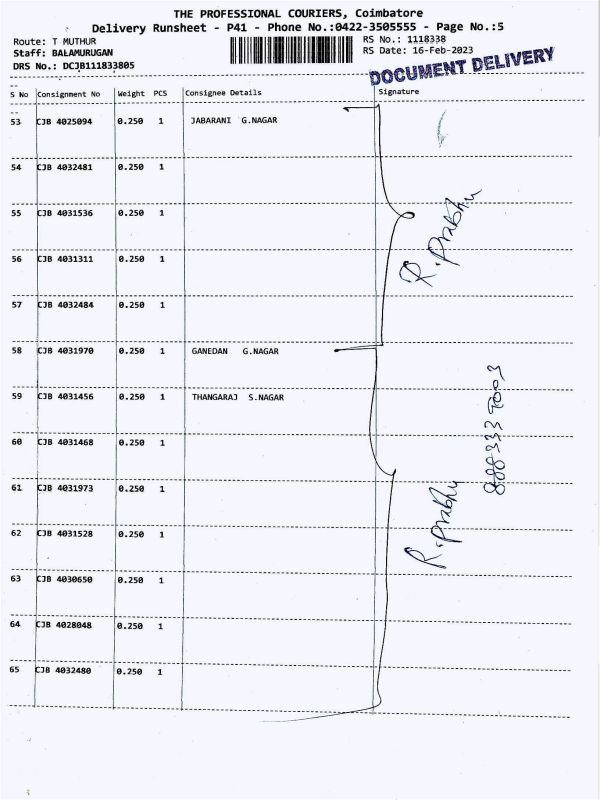 THE PROFESSIONAL COURIERS, Coimbatore
Delivery Runsheet - P41 - Phone No.:0422-3505555 - Page No.:5
Route: T MUTHUR
RS No.: 1118338
Staff: BALAMURUGAN
RS Date: 16-Feb-2023
DRS No.: DCJB111833805
DOCUMENT DELIVERY
S No Consignment No Weight PCS Consignee Details Signature
53 CJB 4025094 0.250 1 JABARANI G.NAGAR
54 CJB 4032481 0.250 1
55 CJB 4031536 0.250 1
R. Prabhu
56 CJB 4031311 0.250 1
57 CJB 4032484 0.250 1
58 CJB 4031970 0.250 1 GANEDAN G.NAGAR
59 CJB 4031456 0.250 1 THANGARAJ S.NAGAR
60 CJB 4031468 0.250 1
61 CJB 4031973 0.250 1
R. Prabhu
62 CJB 4031528 0.250 1
63 CJB 4030650 0.250 1
64 CJB 4028048 0.250 1
65 CJB 4032480 0.250 1